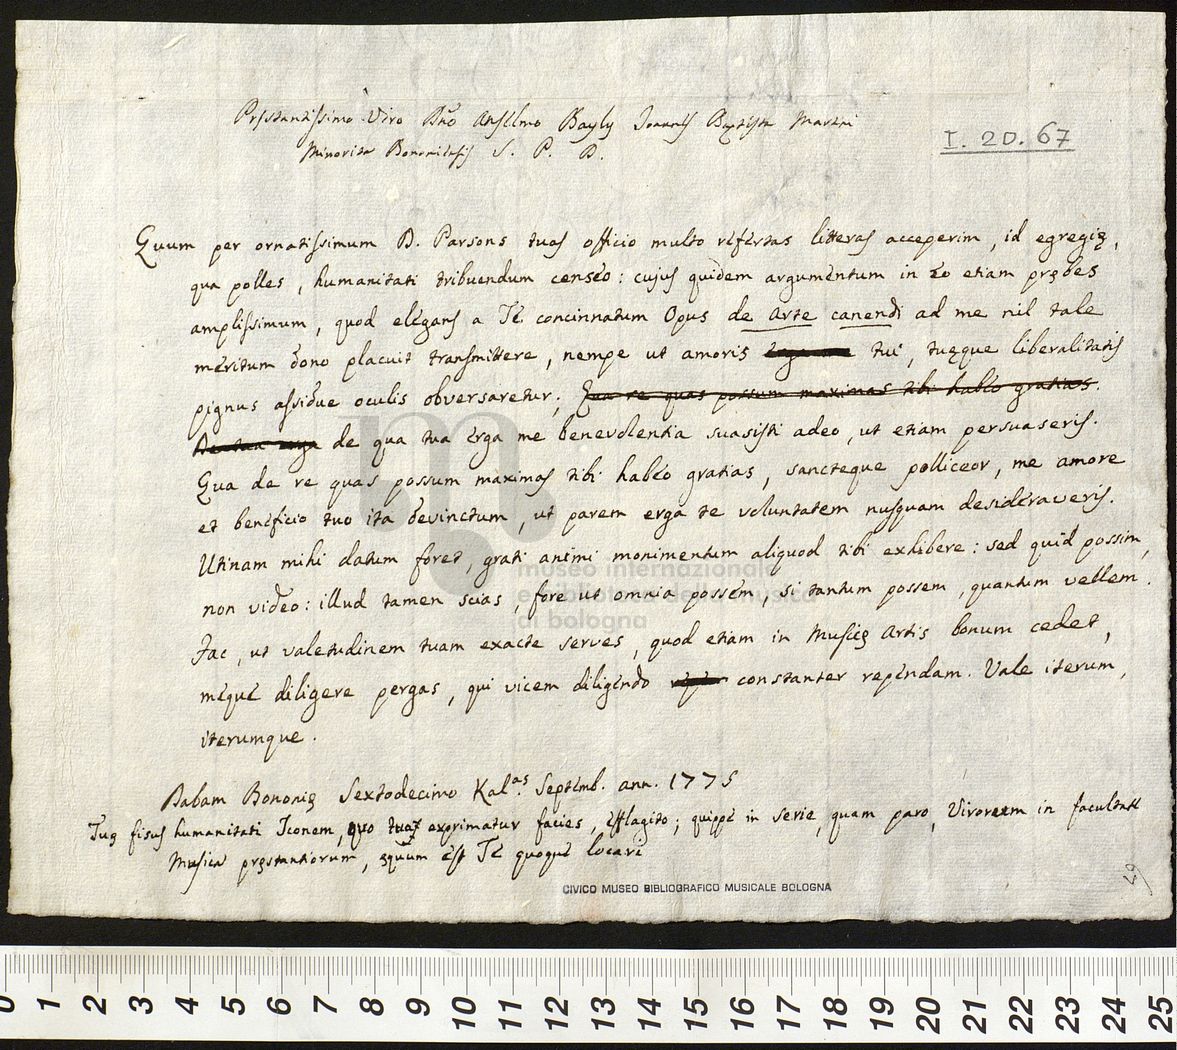 Pręstantissimo Viro Dño Anselmo Bayly Joannes Baptista Martini
Minorita Bononiensis S. P. D.
I. 20. 67
Quum per ornatissimum D. Parsons tuas officio multo refertas litteras acceperim, id egregię,
qua polles, humanitati tribuendum censeo: cujus quidem argumentum in eo etiam prębes
amplissimum, quod elegans a Te concinnatum Opus de Arte canendi ad me nil tale
meritum dono placuit transmittere, nempe ut amoris erga me tui, tuęque liberalitatis
pignus assidue oculis obversaretur; Qua re quas possum maximas tibi habeo gratias.
erga de qua tua erga me benevolentia suasisti adeo, ut etiam persuaseris.
Qua de re quas possum maximas tibi habeo gratias, sancteque polliceor, me amore
et beneficio tuo ita devinctum, ut parem erga te voluntatem nusquam desideraveris.
Utinam mihi datum foret, grati animi monimentum aliquod tibi exhibere: sed quid possim,
non video: illud tamen scias, fore ut omnia possem, si tantum possem, quantum vellem.
Fac, ut valetudinem tuam exacte serves, quod etiam in Musicę Artis bonum cedet,
meque diligere pergas, qui vicem diligendo constanter rependam. Vale iterum,
iterumque.
Dabam Bononię Sextodecimo Kal.as Septemb. ann. 1775
Tuę fisus humanitati Iconem, quo tuaȩ exprimatur facies, efflagito; quippe in serie, quam paro, Virorum in facultate
Musica pręstantiorum, ęquum est Te quoque locari
29
museo internazionale
e biblioteca della musica
di bologna
CIVICO MUSEO BIBLIOGRAFICO MUSICALE BOLOGNA
0 1 2 3 4 5 6 7 8 9 10 11 12 13 14 15 16 17 18 19 20 21 22 23 24 25